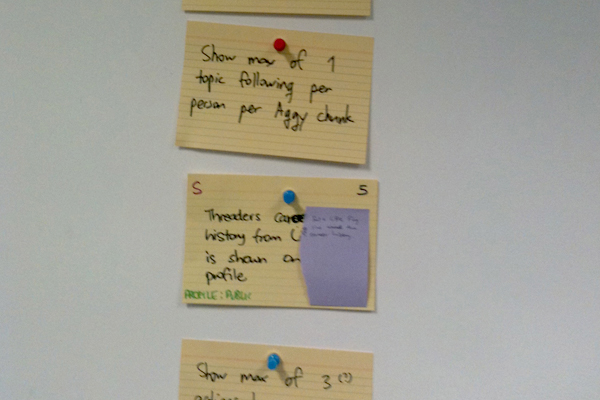 Show max of 1
topic following per
person per Aggy chunk
S 5
Threaders career
history from
is shown on
profile
PROFILE: PUBLIC
Show max of 3 (?)